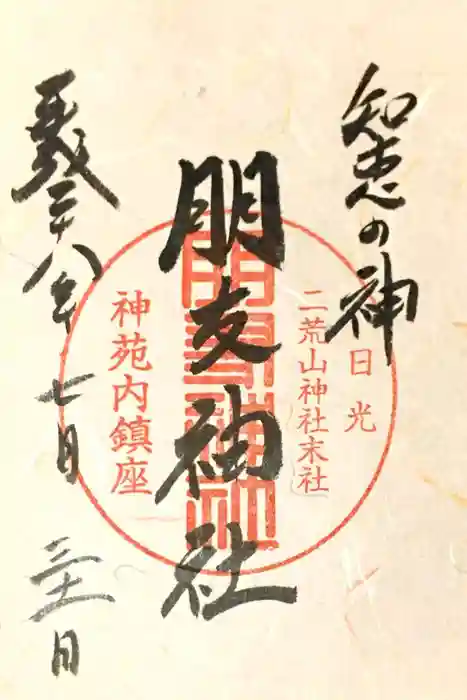 知恵の神
日光
二荒山神社末社
朋友神社
朋友神社
神苑内鎮座
平成二十八年七月三十一日